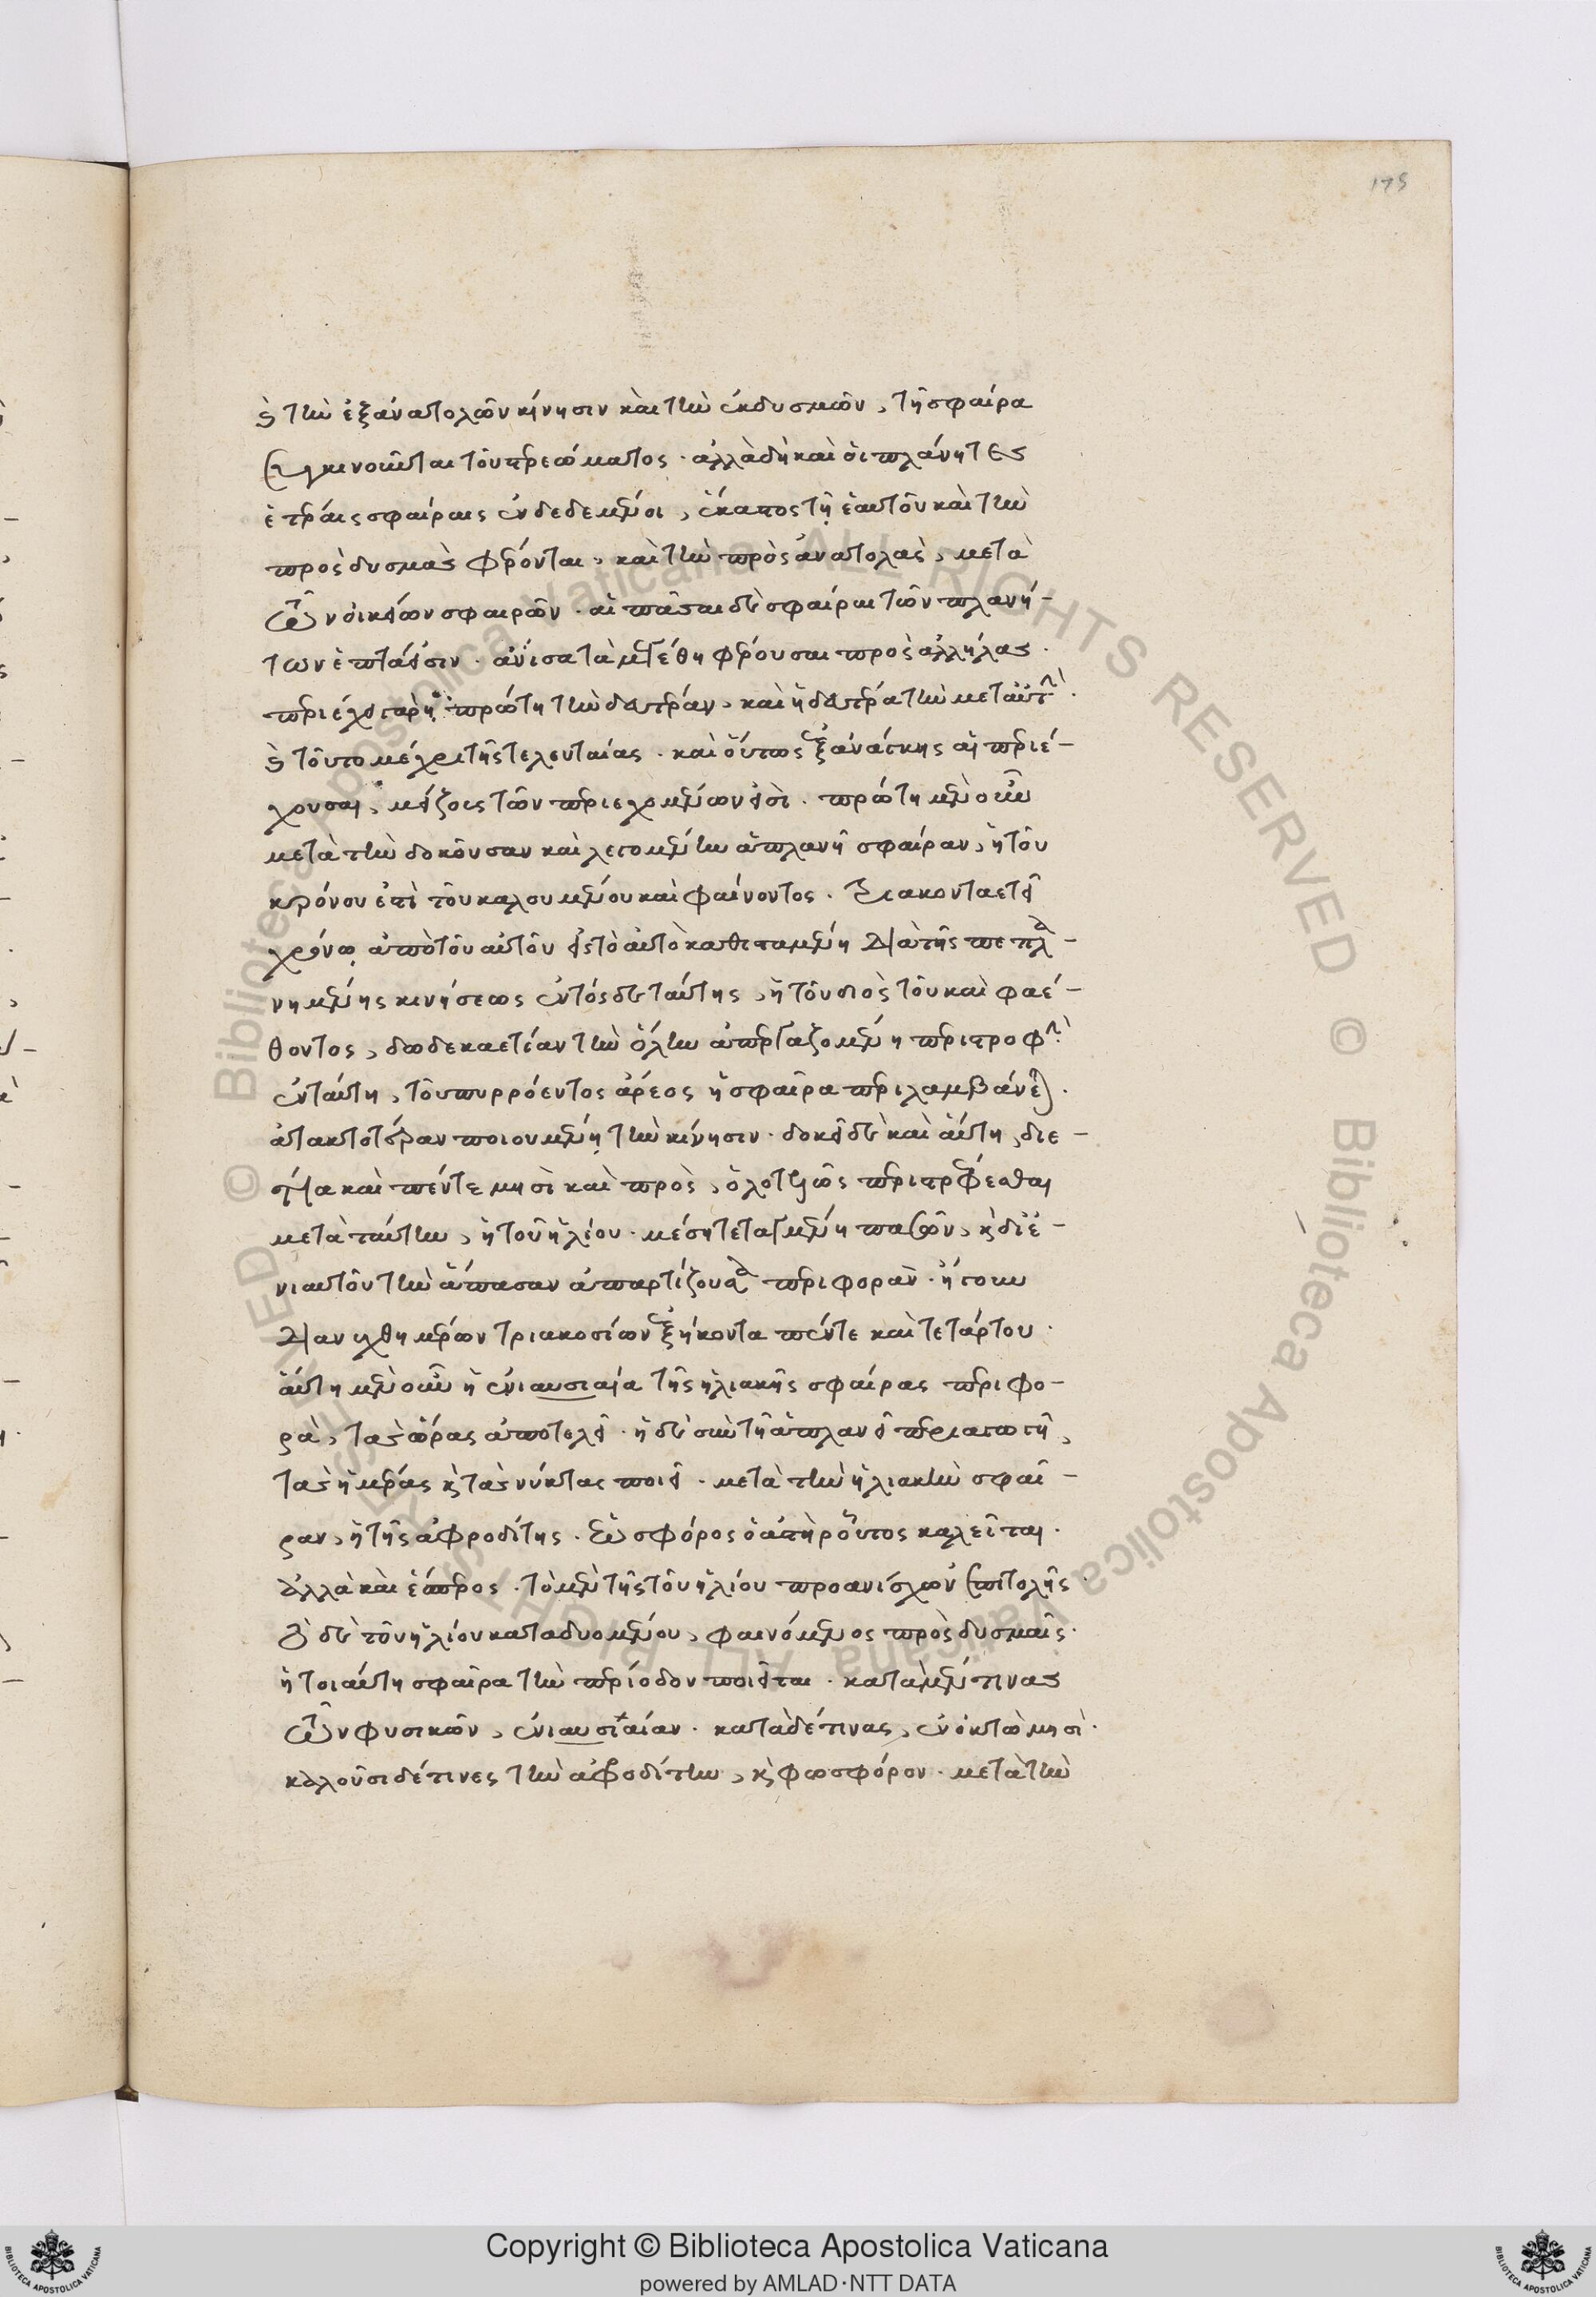 175
καὶ τὴν ἐξ ἀνατολῶν κίνησιν καὶ τὴν ἐκ δυσμῶν, τῆ σφαίρα
κινοῦνται τοῦ στερεώματος. ἀλλὰ δὴ καὶ οἱ πλάνητες
ἑτέραις σφαίραις ἐνδεδεμένοι, ἕκαστος τῇ ἑαυτοῦ καὶ τὴν
πρὸς δυσμὰς φέρονται, καὶ τὴν πρὸς ἀνατολὰς, μετὰ
τῶν οἰκείων σφαιρῶν. αἱ πᾶσαι δὲ σφαίραι τῶν πλανή-
των ἑπτά εἰσιν. ἄνισα τὰ μεγέθη φέρουσαι πρὸς ἀλλήλας.
περιέχει γὰρ ἡ πρώτη τὴν δευτέραν, καὶ ἡ δευτέρα τὴν μετ αὐτὴν.
καὶ τοῦτο μέχρι τῆς τελευταίας. καὶ οὕτως ἐξ ἀνάγκης αἱ περιέ-
χουσαι, μείζους τῶν περιεχομένων εἰσὶ. πρώτη μὲν οὖν
μετὰ τὴν δοκοῦσαν καὶ λεγομένην ἀπλανῆ σφαίραν, ἡ τοῦ
κρόνου ἐστὶ τοῦ καλουμένου καὶ φαίνοντος. τριακονταετεῖ
χρόνῳ ἀπὸ τοῦ αὐτοῦ εἰς τὸ αὐτὸ καθισταμένη διὰ τῆς πεπλα-
νημένης κινήσεως ἐντός δὲ ταύτης, ἡ τοῦ διὸς τοῦ καὶ φαέ-
θοντος, δωδεκαετίαν τὴν ὅλην ἀπεργαζομένη περιστροφὴν.
ἐν ταύτη, τοῦ πυρρόεντος ἄρεος ἡ σφαῖρα περιλαμβάνεται.
ἀτακτοτέραν ποιουμένη τὴν κίνησιν. δοκεῖ δὲ καὶ αὕτη, διε-
τία καὶ πέντε μησὶ καὶ πρὸς, ὁλοτελῶς περιστρέφεσθαι
μετὰ ταύτην, ἡ τοῦ ἡλίου. μέση τεταγμένη πασῶν, καὶ δι ἐ-
νιαυτοῦ τὴν ἅπασαν ἀπαρτίζουσα περιφορὰν. ἤγουν
διὰ νυχθημέρων τριακοσίων ἑξήκοντα πέντε καὶ τετάρτου.
αὕτη μὲν οὖν ἡ ἐνιαυσιαία τῆς ἡλιακῆς σφαίρας περιφο-
ρὰ, τὰς ὥρας ἀποτελεῖ. ἡ δὲ σὺν τῆ ἀπλανεῖ περιαγωγῆ,
τὰς ἡμέρας καὶ τὰς νύκτας ποιεῖ. μετὰ τὴν ἡλιακὴν σφαῖ-
ραν, ἡ τῆς ἀφροδίτης. ἑωσφόρος ὁ ἀστὴρ οὗτος καλεῖται.
ἀλλὰ καὶ ἕσπερος. τὸ μὲν τῆς τοῦ ἡλίου προανίσχων ἐπιτολῆς.
τὸ δὲ τοῦ ἡλίου καταδυομένου, φαινόμενος πρὸς δυσμαῖς.
ἡ τοιαύτη σφαῖρα τὴν περίοδον ποιεῖται. κατὰ μέν τινας
τῶν φυσικῶν, ἐνιαυσιαίαν. κατὰ δέ τινας, ἐν ὀκτὼ μησὶ.
καλοῦσι δέ τινες τὴν ἀφροδίτην, καὶ φωσφόρον. μετὰ τὴν
Copyright © Biblioteca Apostolica Vaticana
powered by AMLAD·NTT DATA
© Biblioteca Apostolica Vaticana ALL RIGHTS RESERVED © Biblioteca Apostolica Vaticana ALL RIGHTS RESERVED